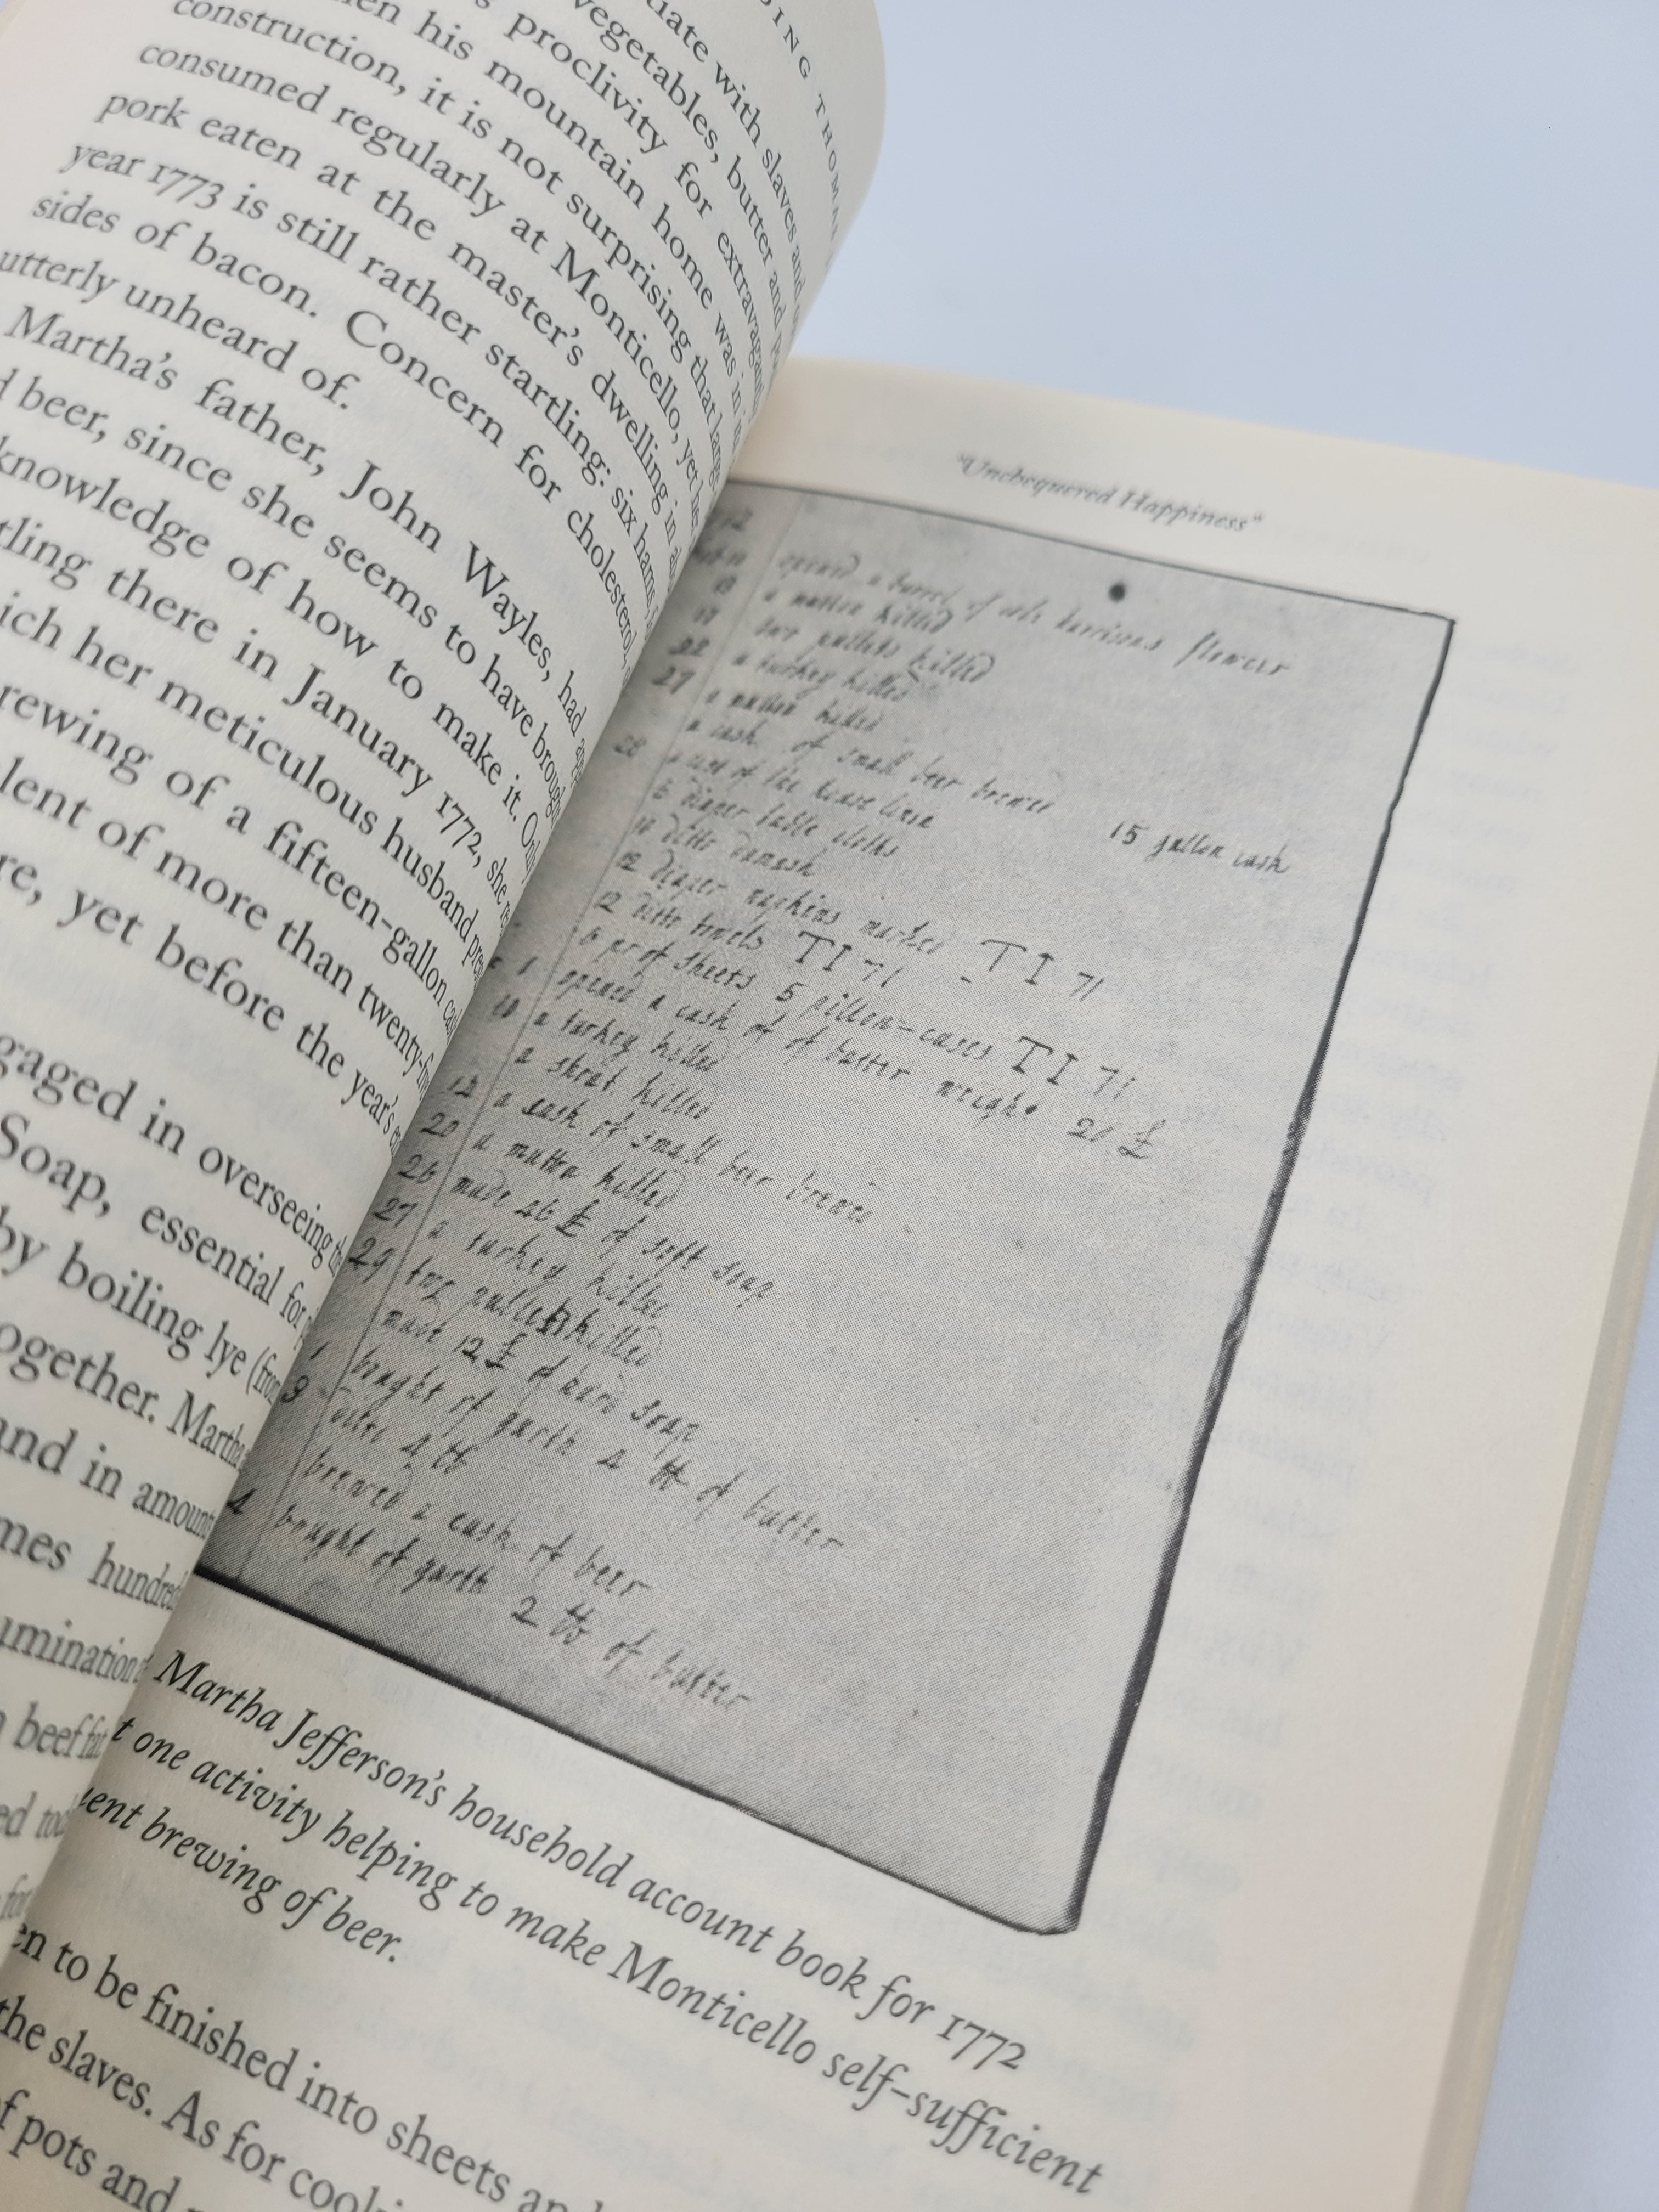 DING THOMA
uate with slaves and
vegetables, butter and
s proclivity for extravagant
en his mountain home was in
construction, it is not surprising that large
consumed regularly at Monticello, yet her
pork eaten at the master's dwelling in
year 1773 is still rather startling: six hams,
sides of bacon. Concern for cholesterol,
utterly unheard of.
Martha's father, John Wayles, had
d beer, since she seems to have brough
knowledge of how to make it. Only
tling there in January 1772, she
ich her meticulous husband
rewing of a fifteen-gallon
lent of more than twenty-five
re, yet before the year's
gaged in overseeing
Soap, essential for
by boiling lye (from
ogether. Martha
and in amount
mes hundred
umination
beef fat
ed
for
"Unchequered Happiness"
opened a barrel of harrisons flower
13 a mutton killed
17 two pullets killed
22 a turkey killed
27 a mutton killed
a cask of small beer brewed 15 gallon cask
28 of the house linen
6 diaper table cloths
10 ditto damask
12 diaper napkins marked TI 71
12 ditto towels TI 71
6 pr of sheets 5 pillow-cases TI 71
1 opened a cask of of butter weighd 20 £
10 a turkey killed
a shoat killed
12 a cask of small beer brewed
20 a mutton killed
26 made 46 £ of soft soap
27 a turkey killed
29 two pullets killed
made 12 £ of hard soap
1 bought of garth 4 ℔ of butter
3 ditto 4 ℔
brewed a cask of beer
4 bought of garth 2 ℔ of butter
Martha Jefferson's household account book for 1772
t one activity helping to make Monticello self-sufficient
uent brewing of beer.
en to be finished into sheets and
the slaves. As for cooki
of pots and